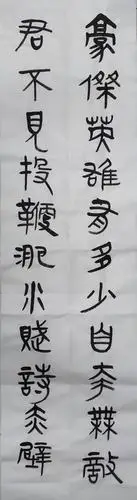 豪傑英雄有多少自夸無敵
君不見投鞭淝水賦詩赤壁